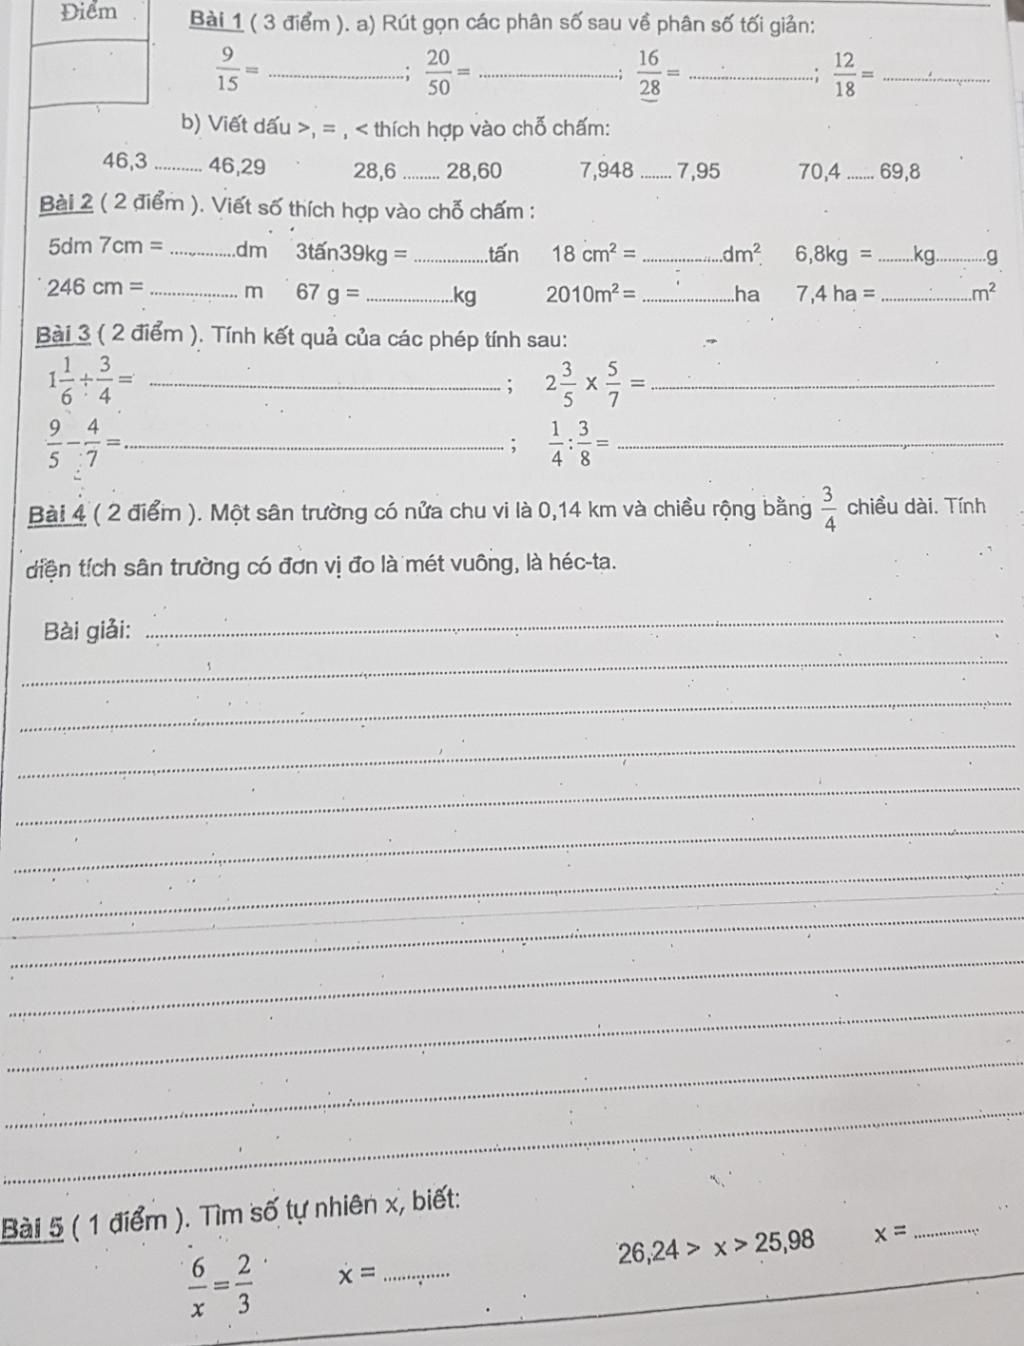 Điểm
Bài 1 ( 3 điểm ). a) Rút gọn các phân số sau về phân số tối giản:
9/15 = ..........; 20/50 = ..........; 16/28 = ..........; 12/18 = ..........
b) Viết dấu >, = , < thích hợp vào chỗ chấm:
46,3 .......... 46,29 28,6 ......... 28,60 7,948 ........ 7,95 70,4 ....... 69,8
Bài 2 ( 2 điểm ). Viết số thích hợp vào chỗ chấm :
5dm 7cm = ..............dm 3tấn39kg = .................tấn 18 cm² = ..................dm² 6,8kg = .........kg............g
246 cm = ................... m 67 g = ...................kg 2010m² = .....................ha 7,4 ha = ....................m²
Bài 3 ( 2 điểm ). Tính kết quả của các phép tính sau:
1 1/6 ÷ 3/4 = .......... ; 2 3/5 x 5/7 = ..........
9/5 − 4/7 = .......... ; 1/4 : 3/8 = ..........
Bài 4 ( 2 điểm ). Một sân trường có nửa chu vi là 0,14 km và chiều rộng bằng 3/4 chiều dài. Tính
diện tích sân trường có đơn vị đo là mét vuông, là héc-ta.
Bài giải: ..........
Bài 5 ( 1 điểm ). Tìm số tự nhiên x, biết:
6/x = 2/3 x = .............. 26,24 > x > 25,98 x = ..............